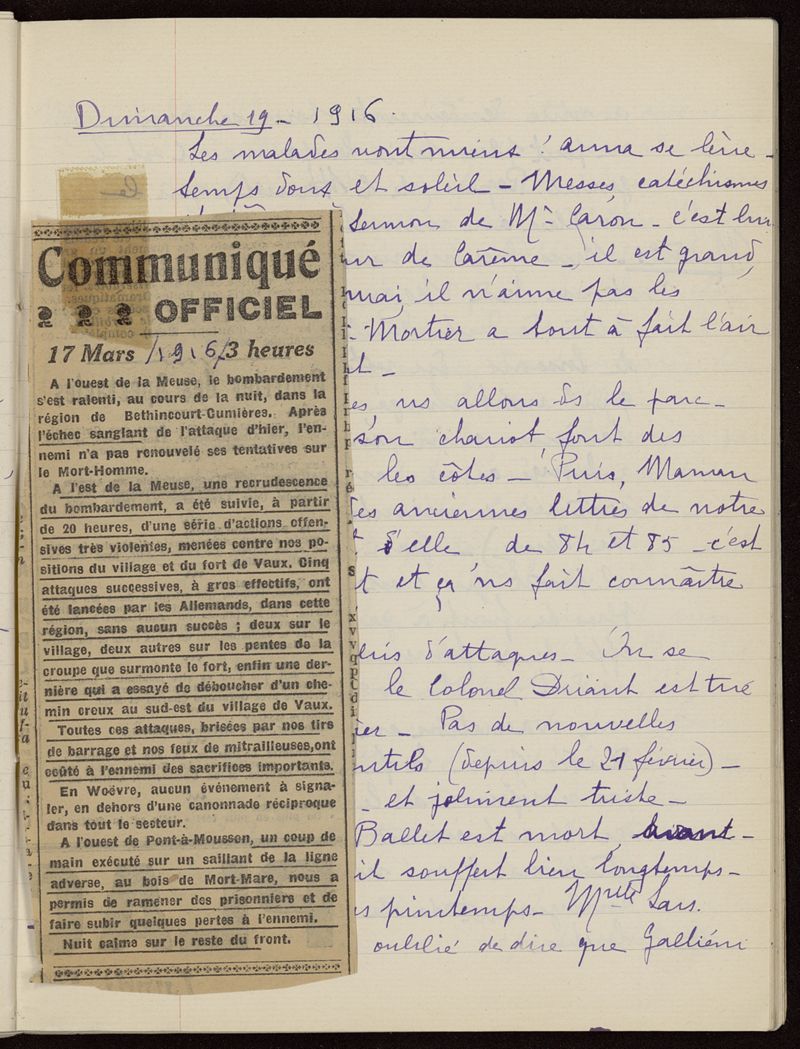 Dimanche 19 - 1916.
Les malades vont mieux ! Anna se lève -
temps doux et soleil - Messes catéchismes
Sermon de Mr Caron - c'est lui
de Carême - il est grand,
mais il n'aime pas les
Mortier a tout à fait l'air
t -
es ns allons ds le parc -
son chariot, font des
les côtes - Puis, Maman
des anciennes lettres de notre
d'elle de 84 et 85 - c'est
t et ça ns fait connaître
d'attaques - On se
le Colonel Driant est tué
er - Pas de nouvelles
(depuis le 21 février) -
- et joliment triste -
Ballet est mort, avant -
it souffert bien longtemps -
s printemps - Melle Sars.
oublié de dire que Galliéni
Communiqué
OFFICIEL
17 Mars /1916/3 heures
A l'ouest de la Meuse, le bombardement
s'est ralenti, au cours de la nuit, dans la
région de Bethincourt-Cumières. Après
l'échec sanglant de l'attaque d'hier, l'en-
nemi n'a pas renouvelé ses tentatives sur
le Mort-Homme.
A l'est de la Meuse, une recrudescence
du bombardement, a été suivie, à partir
de 20 heures, d'une série d'actions offen-
sives très violentes, menées contre nos po-
sitions du village et du fort de Vaux. Cinq
attaques successives, à gros effectifs, ont
été lancées par les Allemands, dans cette
région, sans aucun succès ; deux sur le
village, deux autres sur les pentes de la
croupe que surmonte le fort, enfin une der-
nière qui a essayé de déboucher d'un che-
min creux au sud-est du village de Vaux.
Toutes ces attaques, brisées par nos tirs
de barrage et nos feux de mitrailleuses,ont
coûté à l'ennemi des sacrifices importants.
En Woëvre, aucun événement à signa-
ler, en dehors d'une canonnade réciproque
dans tout le secteur.
A l'ouest de Pont-à-Mousson, un coup de
main exécuté sur un saillant de la ligne
adverse, au bois de Mort-Mare, nous a
permis de ramener des prisonniers et de
faire subir quelques pertes à l'ennemi.
Nuit calme sur le reste du front.